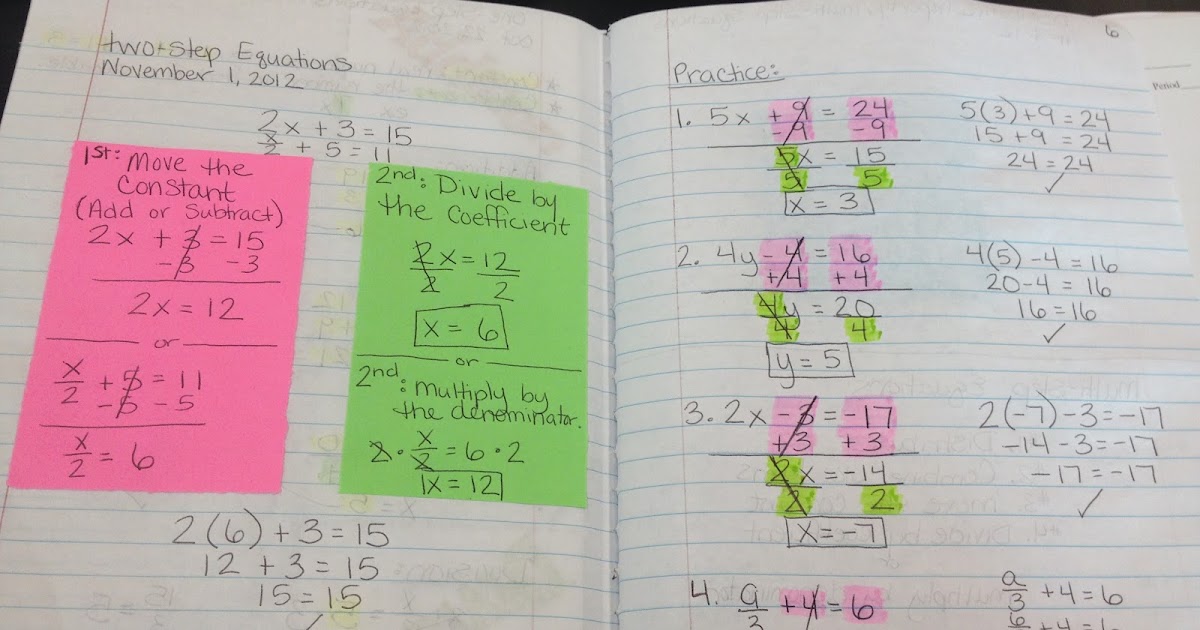 two-Step Equations
November 1, 2012
2x + 3 = 15
x/2 + 5 = 11
1st: Move the
Constant
(Add or Subtract)
2x + 3 = 15
-3 -3
2x = 12
or
x/2 + 5 = 11
-5 -5
x/2 = 6
2nd: Divide by
the coefficient
2x/2 = 12/2
x = 6
or
2nd: multiply by
the denominator.
2 · x/2 = 6 · 2
1x = 12
2(6) + 3 = 15
12 + 3 = 15
15 = 15
✓
6
Period
Practice:
1. 5x + 9 = 24
-9 -9
5x = 15
5 5
x = 3
5(3) + 9 = 24
15 + 9 = 24
24 = 24
✓
2. 4y - 4 = 16
+4 +4
4y = 20
4 4
y = 5
4(5) - 4 = 16
20 - 4 = 16
16 = 16
✓
3. 2x - 3 = -17
+3 +3
2x = -14
2 2
x = -7
2(-7) - 3 = -17
-14 - 3 = -17
-17 = -17
✓
4. a/3 + 4 = 6
a/3 + 4 = 6